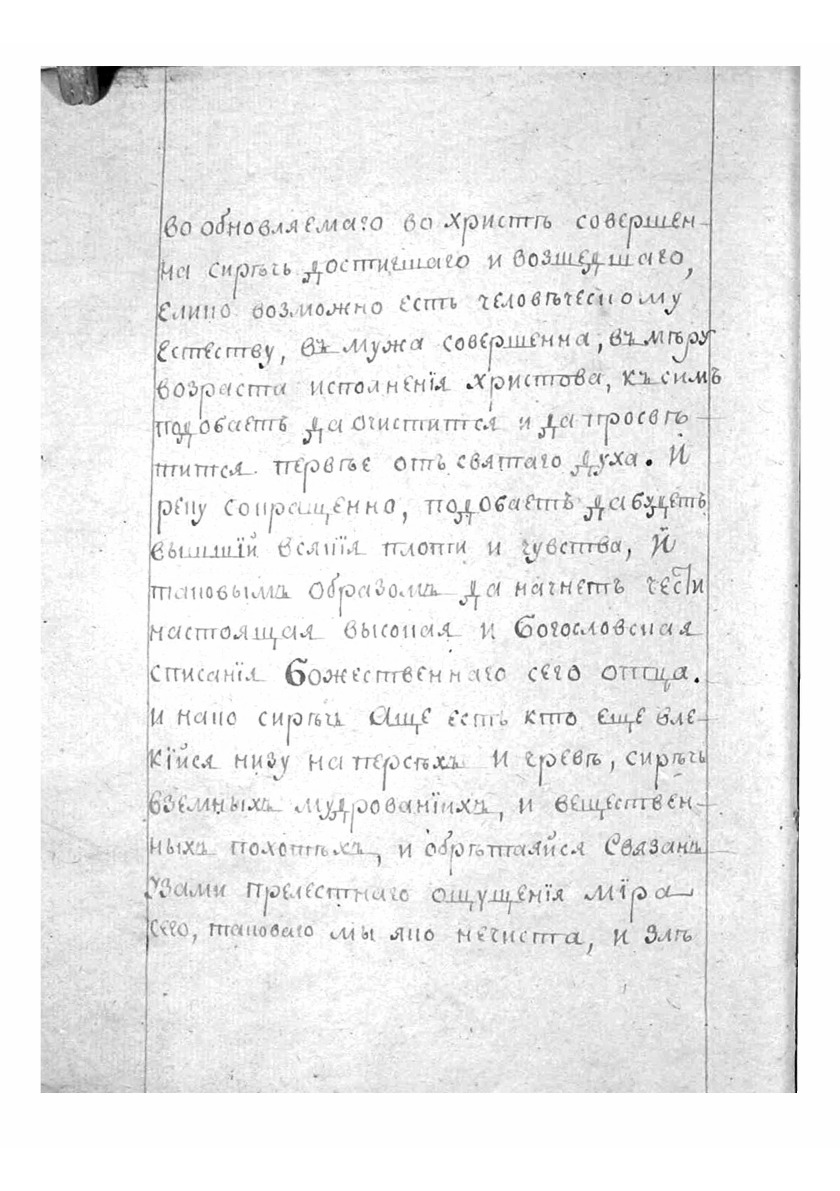 во обновляемаго во Христѣ совершен-
на сирѣчь достигшаго и возшедшаго,
елико возможно есть человѣческому
естеству, въ мужа совершенна, въ мѣру
возраста исполненїя христова, къ симъ
подобаетъ да очистится и да просвѣ-
тится первѣе отъ святаго духа. И
реку сокращенно, подобаетъ да будетъ
вышшїй всякїя плоти и чувства, И
таковымъ образомъ да начнетъ чести
настоящая высокая и Богословская
списанїя Божественнаго сего отца.
и како сирѣчь Аще есть кто еще вле-
кїйся низу на персѣхъ и чревѣ, сирѣчь
вземныхъ мудрованїихъ, и веществен-
ныхъ похотѣхъ, и обрѣтаяйся Связанъ
Узами прелестнаго ощущенїя мїра
сего, таковаго мы яко нечиста, и злѣ